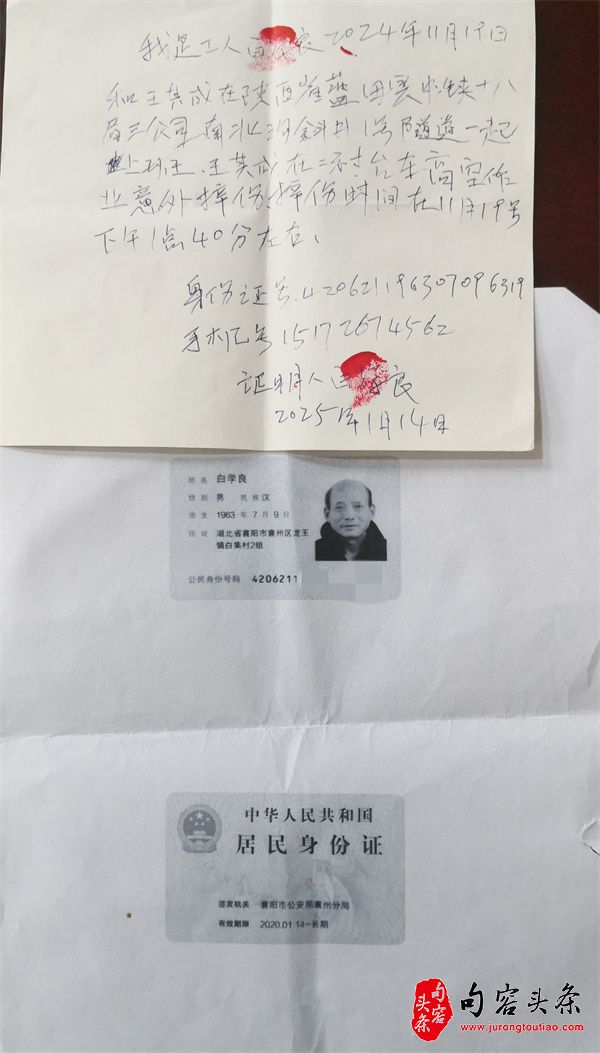 我是工人白学良2024年11月19日
和王其成在陕西省蓝田县中铁十八
局三公司南北沟斜井1号隧道一起
上班王、王其成在二衬台车高空作
业意外摔伤摔伤时间在11月19号
下午1点40分左右、
身份证号.420621196307096319
手机号15172674562
证明人白学良
2025年1月14日
姓名 白学良
性别 男 民族 汉
出生 1963 年 7 月 9 日
住址 湖北省襄阳市襄州区龙王
镇白集村2组
公民身份号码 4206211
中华人民共和国
居民身份证
签发机关 襄阳市公安局襄州分局
有效期限 2020.01.14-长期
句容头条
句容头条
www.jurongtoutiao.com